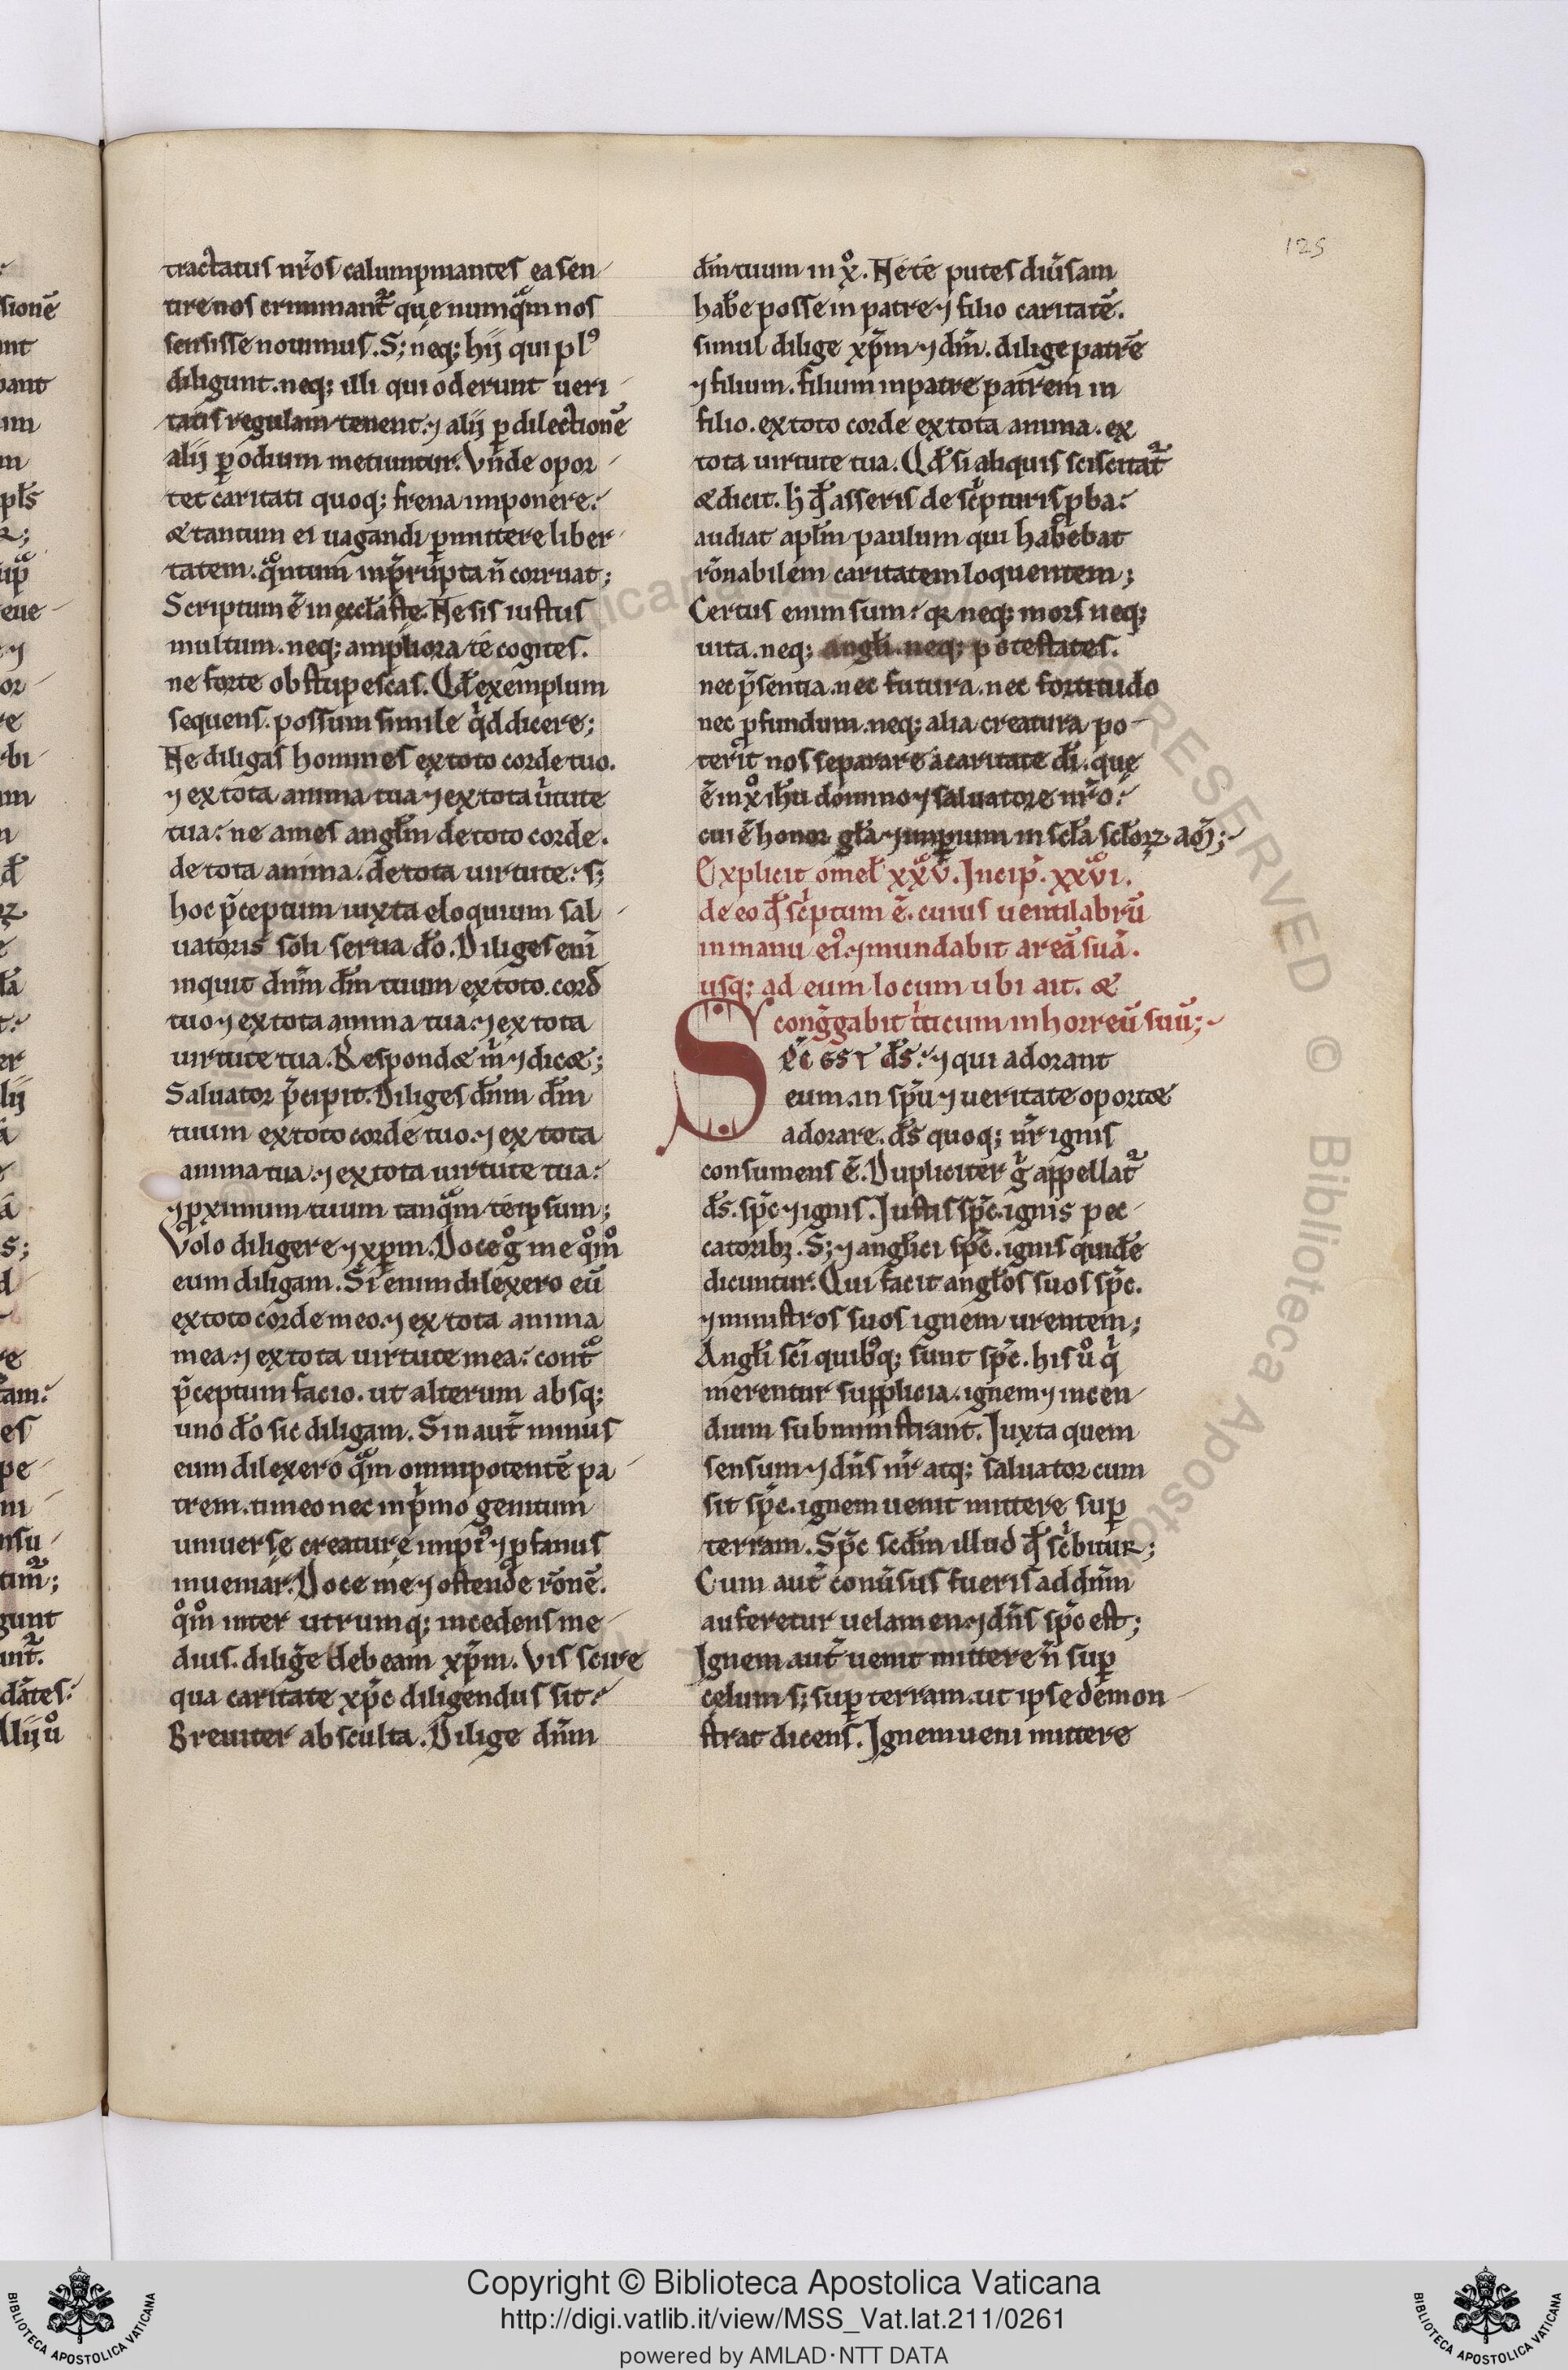 125
tractatus nr̄os calumpniantes ea sen-
tire nos criminant᷑ que numqᷓm nos
sensisse nouimus. S; neq; hij qui plꝰ
diligunt. neq; illi qui oderunt ueri-
tatis regulam tenent. ⁊ alij ꝑ dilectionē
alij ꝑ odium metiuntur. Vnde opor-
tet caritati quoq; frena imponere.
& tantum ei uagandi ꝑmittere liber-
tatem. qᷓntum in p̄rupta n̄ corruat;
Scriptum ē in eccłaste. Ne sis iustus
multum. neq; ampliora te cogites.
ne forte obstupescas. Qđ exemplum
sequens. possum simile qͥd dicere;
Ne diligas homines ex toto corde tuo.
⁊ ex tota anima tua ⁊ ex tota uͥtute
tua. ne ames angłm de toto corde.
de tota anima. de tota uirtute. s;
hoc p̄ceptum iuxta eloquium sal-
uatoris soli serua đo. Diliges enī
inquit dn̄m đm tuum ex toto cord̄
tuo ⁊ ex tota anima tua. ⁊ ex tota
uirtute tua. Respond& m̄ ⁊ dic&;
Saluator p̄cipit. Diliges dn̄m đm
tuum ex toto corde tuo. ⁊ ex tota
anima tua. ⁊ ex tota uirtute tua.
⁊ ꝓximum tuum tanqᷓm te ipsum;
Volo diligere ⁊ xp̄m. Doce gͦ me qͦmͦ
eum diligam. Si enim dilexero eū
ex toto corde meo. ⁊ ex tota anima
mea. ⁊ ex tota uirtute mea. contᷓ
p̄ceptum facio. ut alterum absq;
uno đo sic diligam. Sin aut̄ minus
eum dilexero qᷓm omnipotentē pa-
trem. timeo nec in pͥmo genitum
uniuerse creature impiꝰ ⁊ ꝓfanus
inueniar. Doce me ⁊ ostende rōnē.
qͦmͦ inter utrumq; incedens me-
dius. diliḡe debeam xp̄m. Vis scire
qua caritate xp̄c diligendus sit.
Breuiter absculta. Dilige dn̄m
đm tuum in xͦ. Ne te putes diu̅sam
habe posse in patre ⁊ filio caritatē.
simul dilige xp̄m ⁊ dm̄. dilige patrē
⁊ filium. filium in patre patrem in
filio. ex toto corde ex tota anima. ex
tota uirtute tua. Qđ si aliquis sciscitat᷑
& dicit. h̄ qđ asseris de scͥpturis ꝓba.
audiat apłm paulum qui habebat
rōnabilem caritatem loquentem;
Certus enim sum. qꝛ neq; mors neq;
uita. neq; angłi. neq; potestates.
nec p̄sentia. nec futura. nec fortitudo
nec ꝓfundum. neq; alia creatura po-
terit nos separare a caritate đi. que
ē in xͦ ih̄u domino ⁊ saluatore nr̄o.
cui ē honor gła ⁊ imꝑium in scła scłorꝝ am̄;
Explicit omeł xxͦvͣ. Incip̄. xxͦvi.
de eo qđ scͥptum ē. cuius uentilabrū
in manu eiꝰ. ⁊ mundabit areā suā.
usq; ad eum locum ubi ait. &
congͣgabit tͥticum in horreū suū;
Sp̄c est đs. ⁊ qui adorant
eum. in sp̄u ⁊ ueritate oport&
adorare. đs quoq; nr̄ ignis
consumens ē. Dupliciter gͥ appellat᷑
đs. sp̄c ⁊ ignis. Iustis sp̄c. ignis pec-
catoribꝫ. S; ⁊ anglici sp̄c. ignis quidē
dicuntur. Qui facit angłos suos sp̄c.
⁊ ministros suos ignem urentem;
Angłi sc̄i quibꝰq; sunt sp̄c. his uͦ qͥ
merentur supplicia. ignem ⁊ incen-
dium subministrant. Iuxta quem
sensum ⁊ dn̄s nr̄ atq; saluator cum
sit sp̄c. ignem uenit mittere suꝑ
terram. Sp̄c scđm illud qđ scͥbitur;
Cum aut̄ conu̅sus fueris ad dn̄m
auferetur uelamen. ⁊ dn̄s sp̄c est;
Ignem aut̄ uenit mittere n̄ suꝑ
celum s; suꝑ terram. ut ipse demon-
strat dicens. Ignem ueni mittere
Copyright © Biblioteca Apostolica Vaticana
http://digi.vatlib.it/view/MSS_Vat.lat.211/0261
powered by AMLAD·NTT DATA
BIBLIOTECA APOSTOLICA VATICANA
BIBLIOTECA APOSTOLICA VATICANA